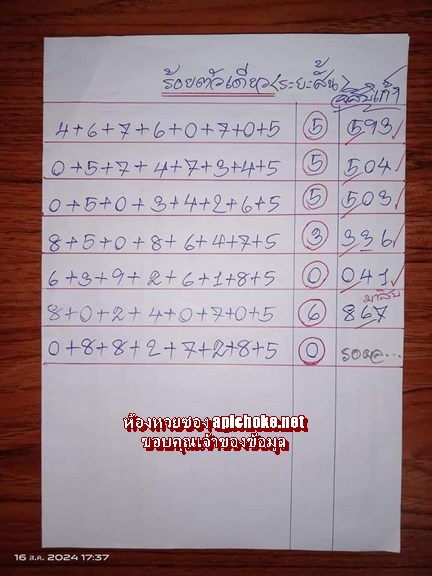 ร้อยตัวเดียว(ระยะสั้น)
4+6+7+6+0+7+0+5 5 593
0+5+7+4+7+3+4+5 5 504
0+5+0+3+4+2+6+5 5 503
8+5+0+8+6+4+7+5 3 336
6+3+9+2+6+1+8+5 0 041
มาสิบ
8+0+2+4+0+7+0+5 6 867
0+8+8+2+7+2+8+5 0 รอผล...
ห้องหวยซอง apichoke.net
ขอบคุณเจ้าของข้อมูล
16 ส.ค. 2024 17:37